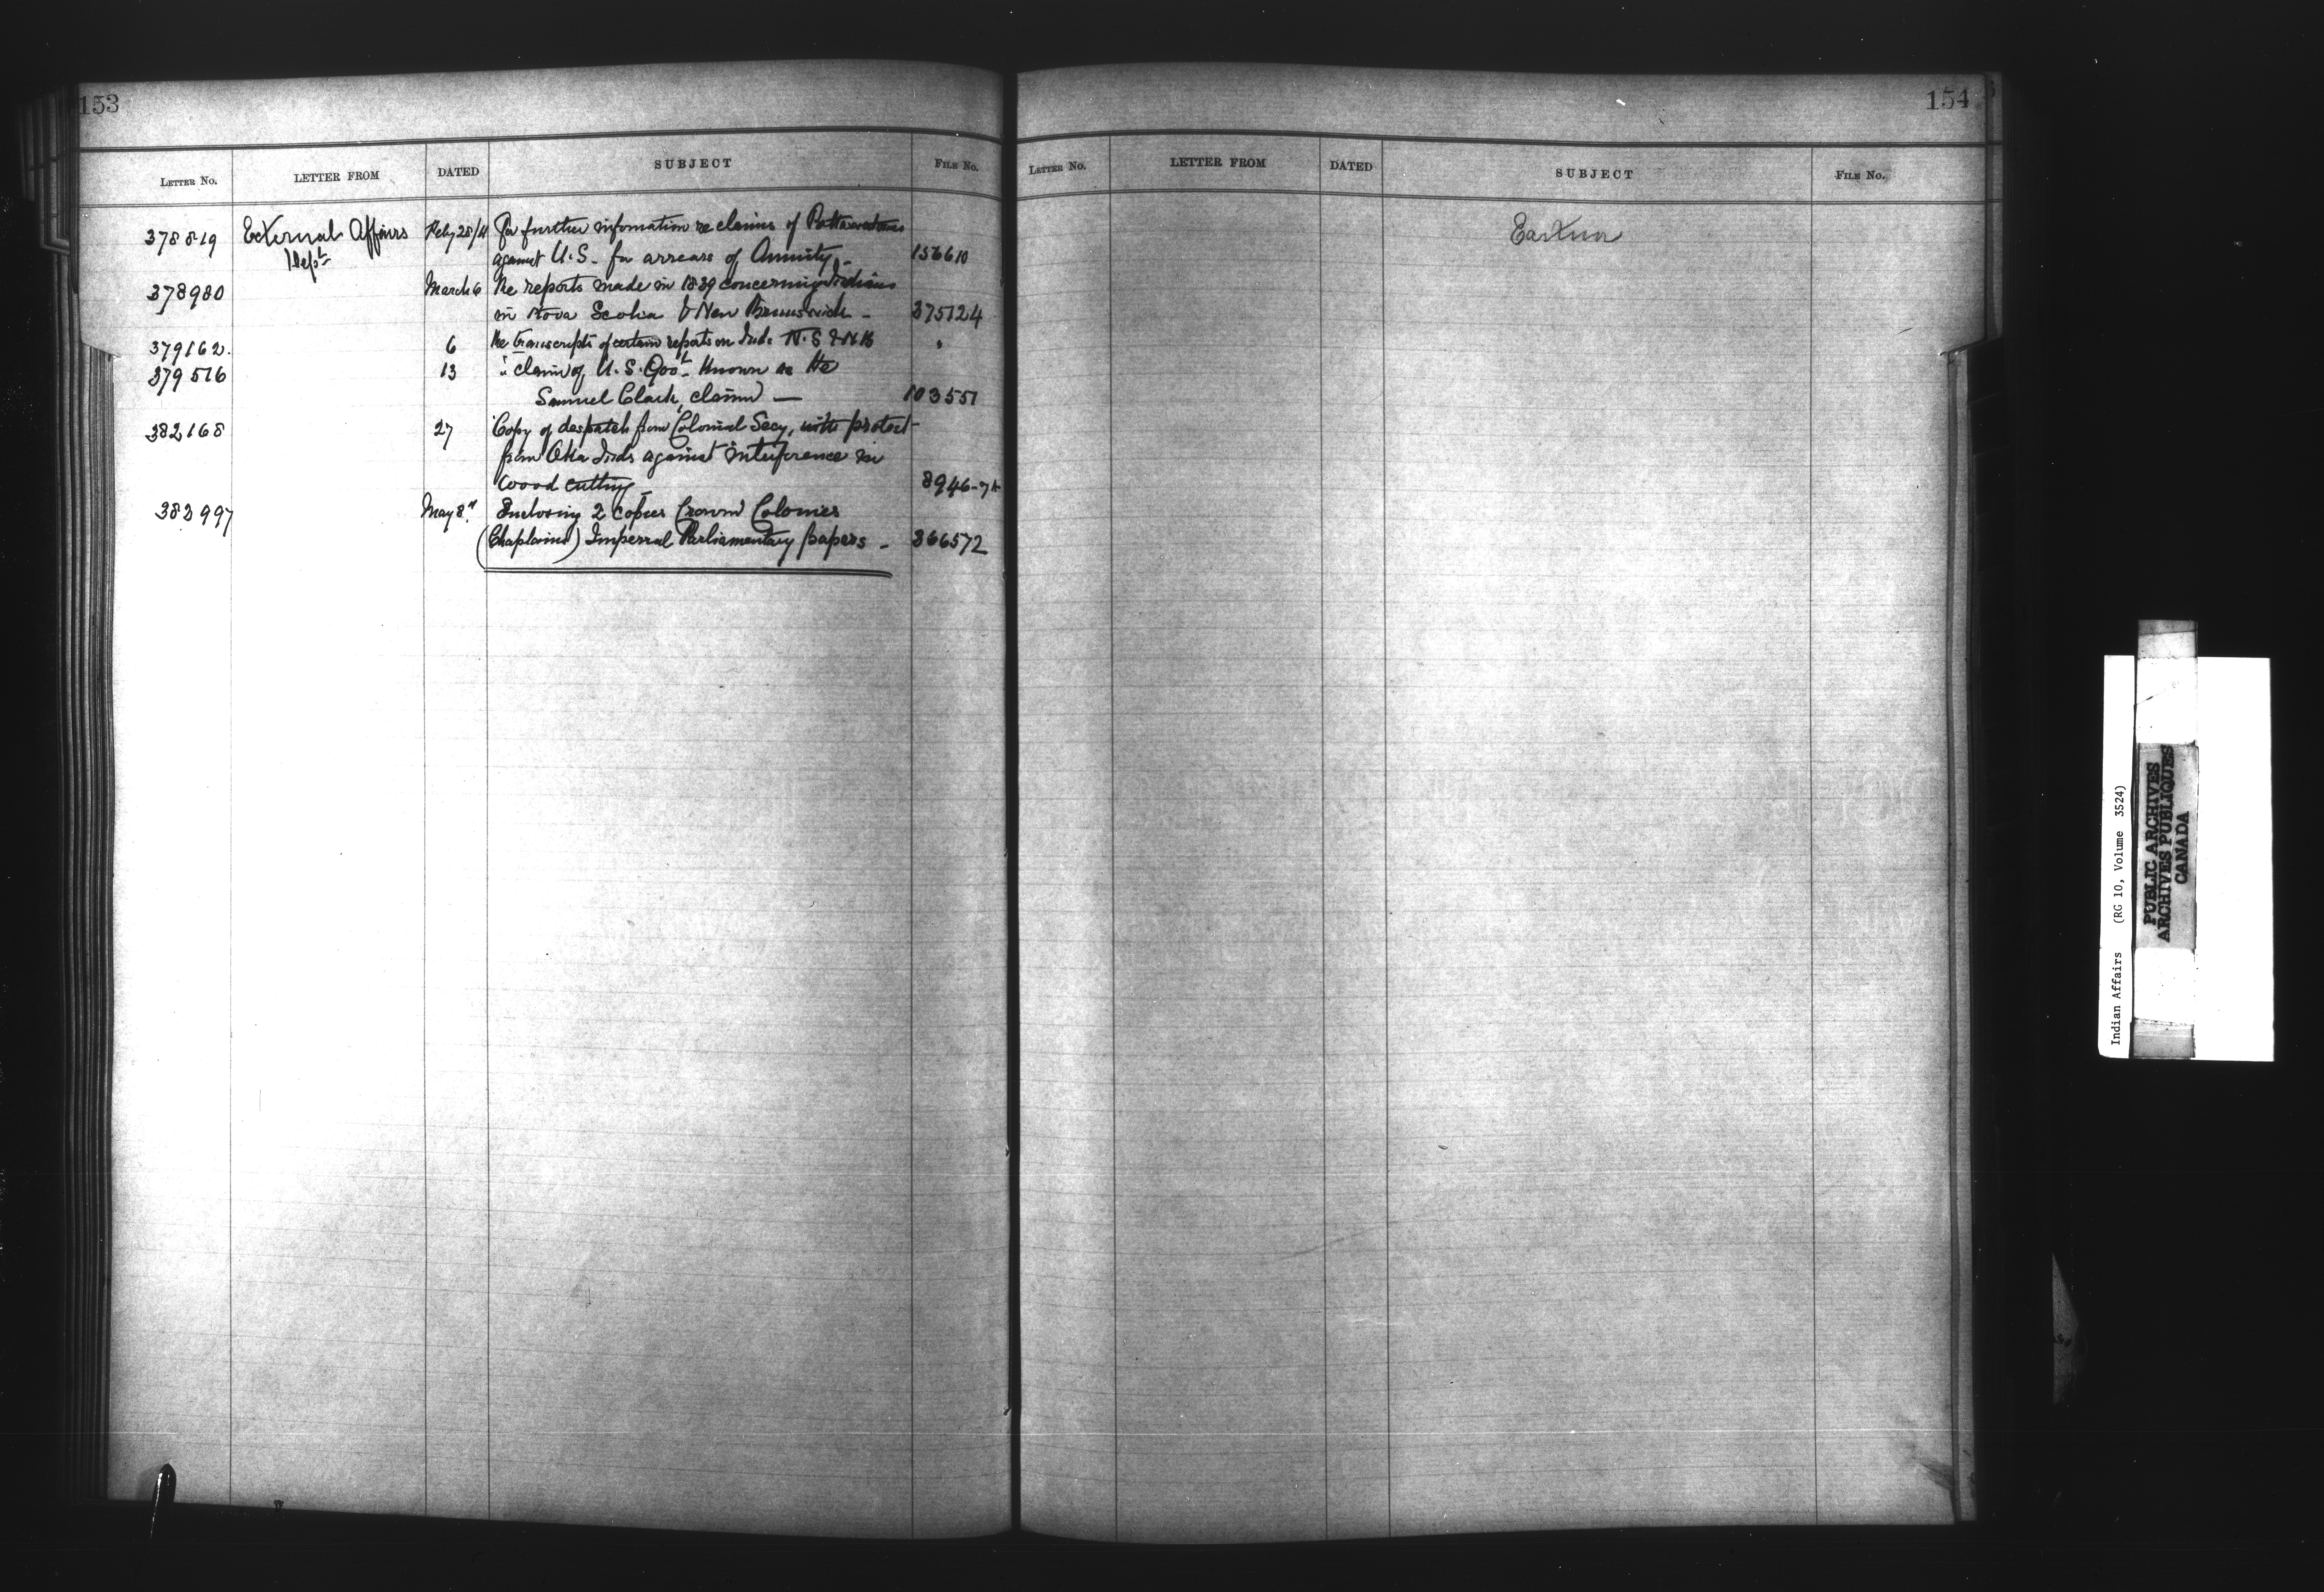 153
LETTER NO. LETTER FROM DATED SUBJECT FILE No.
378819 External Affairs Feby 28/11 For further information re claims of Pottawatomies
Dept against U.S. for arrears of Annuity - 156610
378980 March 6 Re reports made in 1839 concerning Indians
in Nova Scotia & New Brunswick - 375124
379162. 6 Re transcripts of certain reports on Inds N.S & N B "
379516 13 " claim of U.S. Govt known as the
Samuel Clark, claim — 103551
382168 27 Copy of despatch from Colonial Secy, with protest
from Oka Inds against interference in
wood cutting - 8946-
382997 May 8" Enclosing 2 copies Crown Colonies
(Chaplains) Imperial Parliamentary papers - 366572
154
LETTER NO. LETTER FROM DATED SUBJECT FILE No.
Indian Affairs (RG 10, Volume 3524)
PUBLIC ARCHIVES
ARCHIVES PUBLIQUES
CANADA